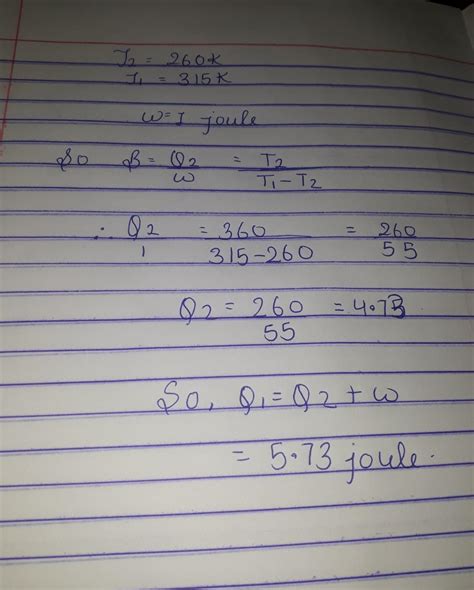 T2 = 260K
T1 = 315K
W = 1 joule
So β = Q2/W = T2/T1-T2
∴ Q2/1 = 360/315-260 = 260/55
Q2 = 260/55 = 4.73
So, Q1 = Q2 + W
= 5.73 joule.